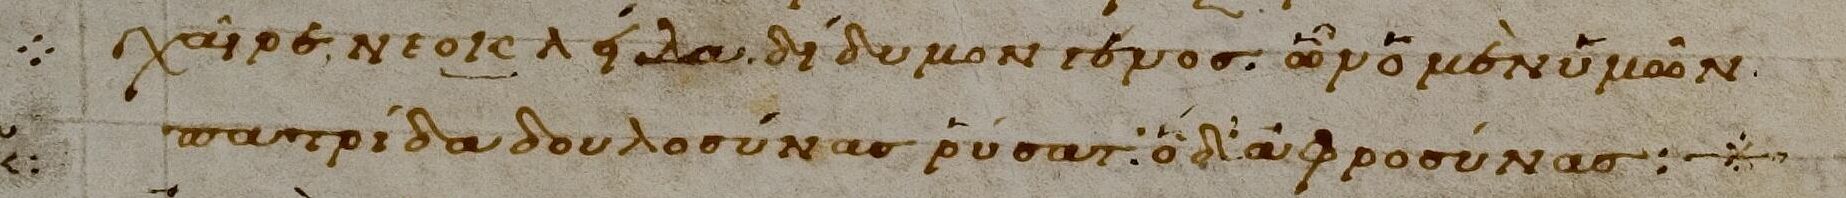 χαῖρε, νεοκλήλα. δίδυμον γένος. ὧν ὁ μὲν ὑμῶν.
πατρίδα δουλοσύνας ῥύσατ· ὁ δ' ἀφροσύνας :